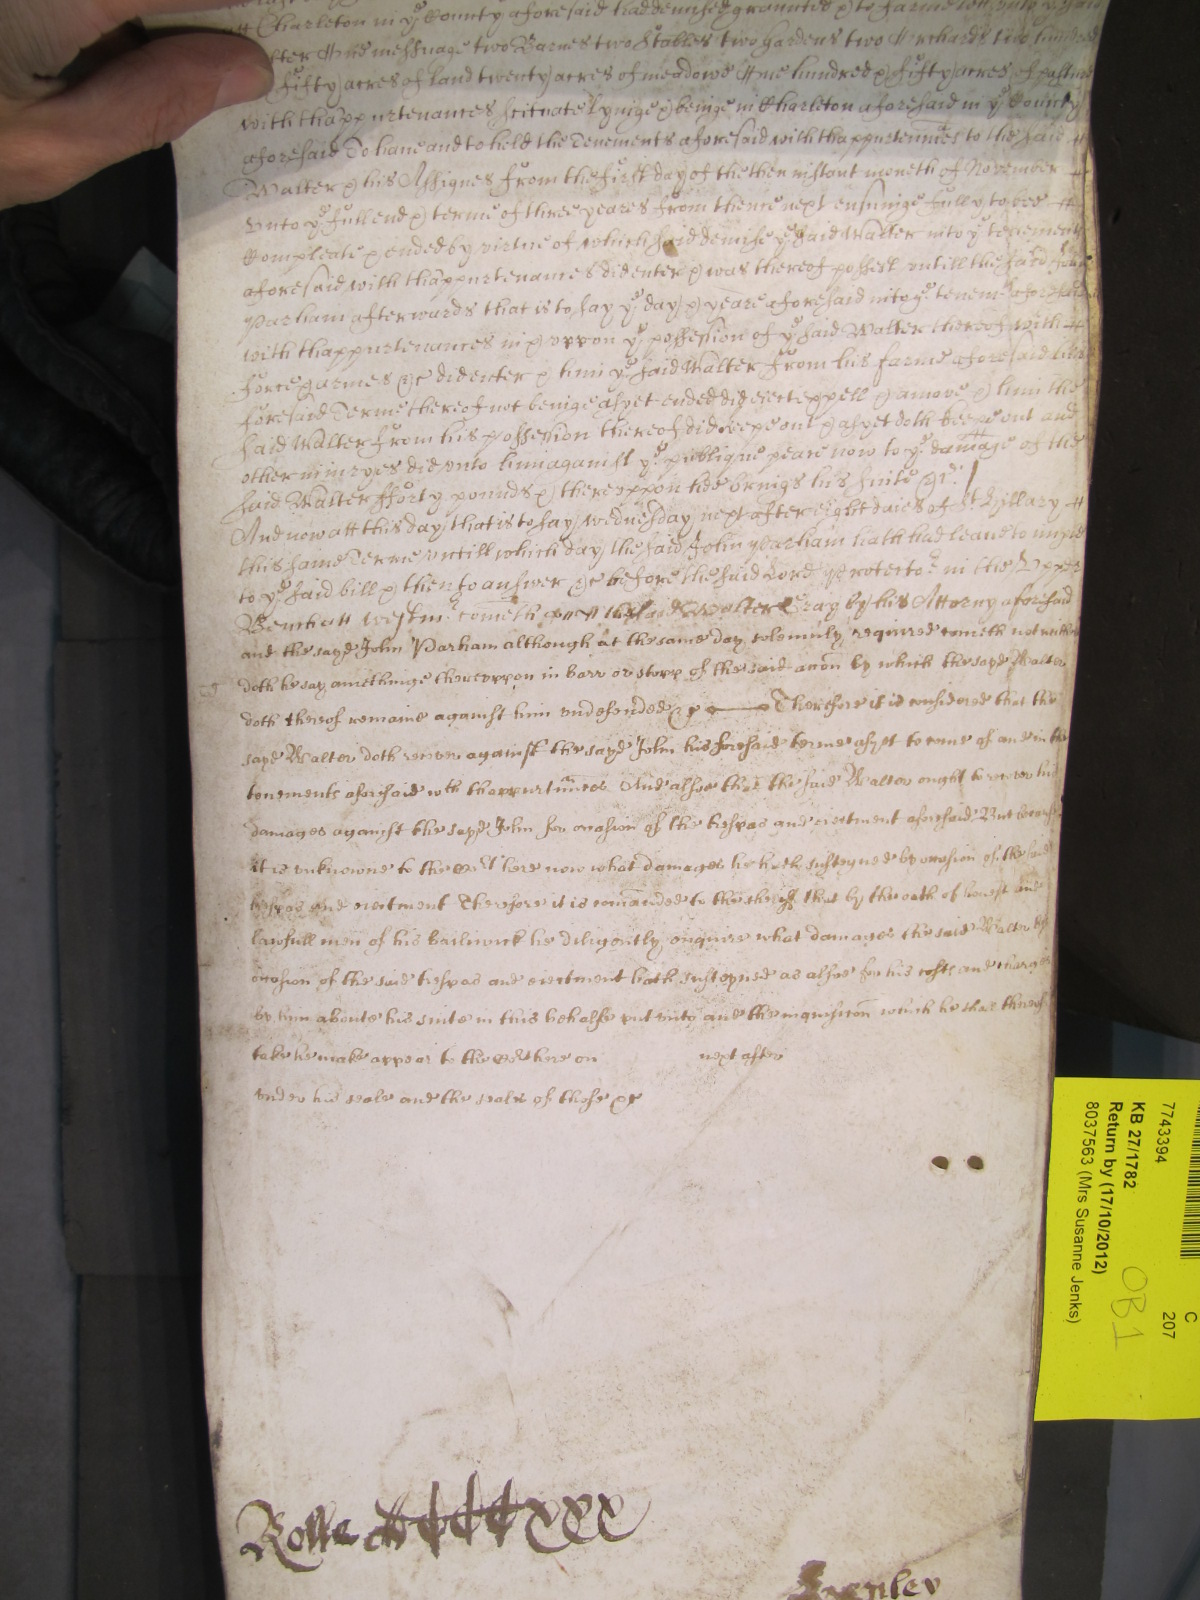 att Charleton in ye County aforesaid had demised graunted & to farme lett unto ye said
One messuage two Barnes two Stables two gardens two Orchards two hundred
& fifty acres of land twenty acres of meadowe One hundred & fifty acres of pasture
with thappurtenances scituate lyinge & beinge in Charleton aforesaid in ye County
aforesaid To have and to hold the Tenements aforesaid with thappurtennces to the said
Walter & his Assignes from the first day of the then instant moneth of November
Unto ye full end & terme of three yeares from thence next ensuinge fully to bee
Compleate & ended by virtue of which said demise ye said Walter into ye tenements
aforesaid with thappurtenances did enter & was thereof possest untill the said John
Parham afterwards that is to say ye day & yeare aforesaid into ye tenemts aforesaid
with thappurtenances in & uppon ye possession of ye said Walter thereof with
force & armes &c did enter & him ye said Walter from his farme aforesaid his
foresaid Terme thereof not beinge as yet ended did eiect expell & amove & him the
said Walter from his possession thereof did keepe out & as yet doth keepe out and
other iniuryes did unto him against ye publique peace now to ye damage of the
said Walter fforty pounds & thereuppon hee brings his suite &c
And now att this day that is to say wednesday next after eight daies of St Hillary
this same Terme untill which day the said John Parham hath had leave to imple
to ye said bill & then to answer &c before the said Lord Protector in the Upper
Bench att Westmr cometh the said Walter by his Attorny aforesaid
and the sayd John Parham although at the same day solemnly required cometh not neither
doth he say anie thinge thereuppon in barr or stopp of the said accon by which the sayd Walter
doth thereof remaine against him undefended &c Therefore it is considered that the
sayd Walter doth recover against the sayd John his foresaid terme as yet to come of and in the
tenements aforesaid wth thappurtnnces And alsoe that the said Walter ought to recover his
damages against the sayd John for occasion of the trespas and eiectment aforesaid But because
it is unknowne to the Cort here now what damages he hath susteyned by occasion of the said
trespas and eiectment Therefore it is comanded to the sheriff that by the oath of honest and
lawfull men of his bailiwick he diligently enquire what damages the said Walter by
occasion of the said trespas and eiectment hath susteyned as alsoe for his costs and charges
by him aboute his suite in this behalfe put unto and the inquisicon which he shal thereof
take he make appear to the Cort here on next after
under his seale and the seales of those &c
Rolle
7743394
KB 27/1782
Return by (17/10/2012)
8037563 (Mrs Susanne Jenks)
C
207
OB1